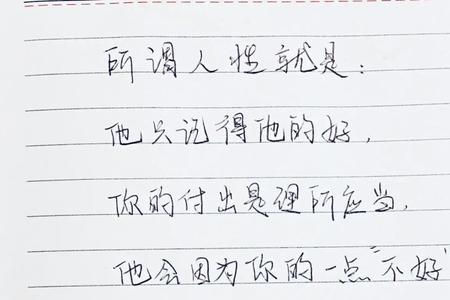 所谓人性就是：
他只记得他的好，
你的付出是理所应当，
他会因为你的一点“不好”